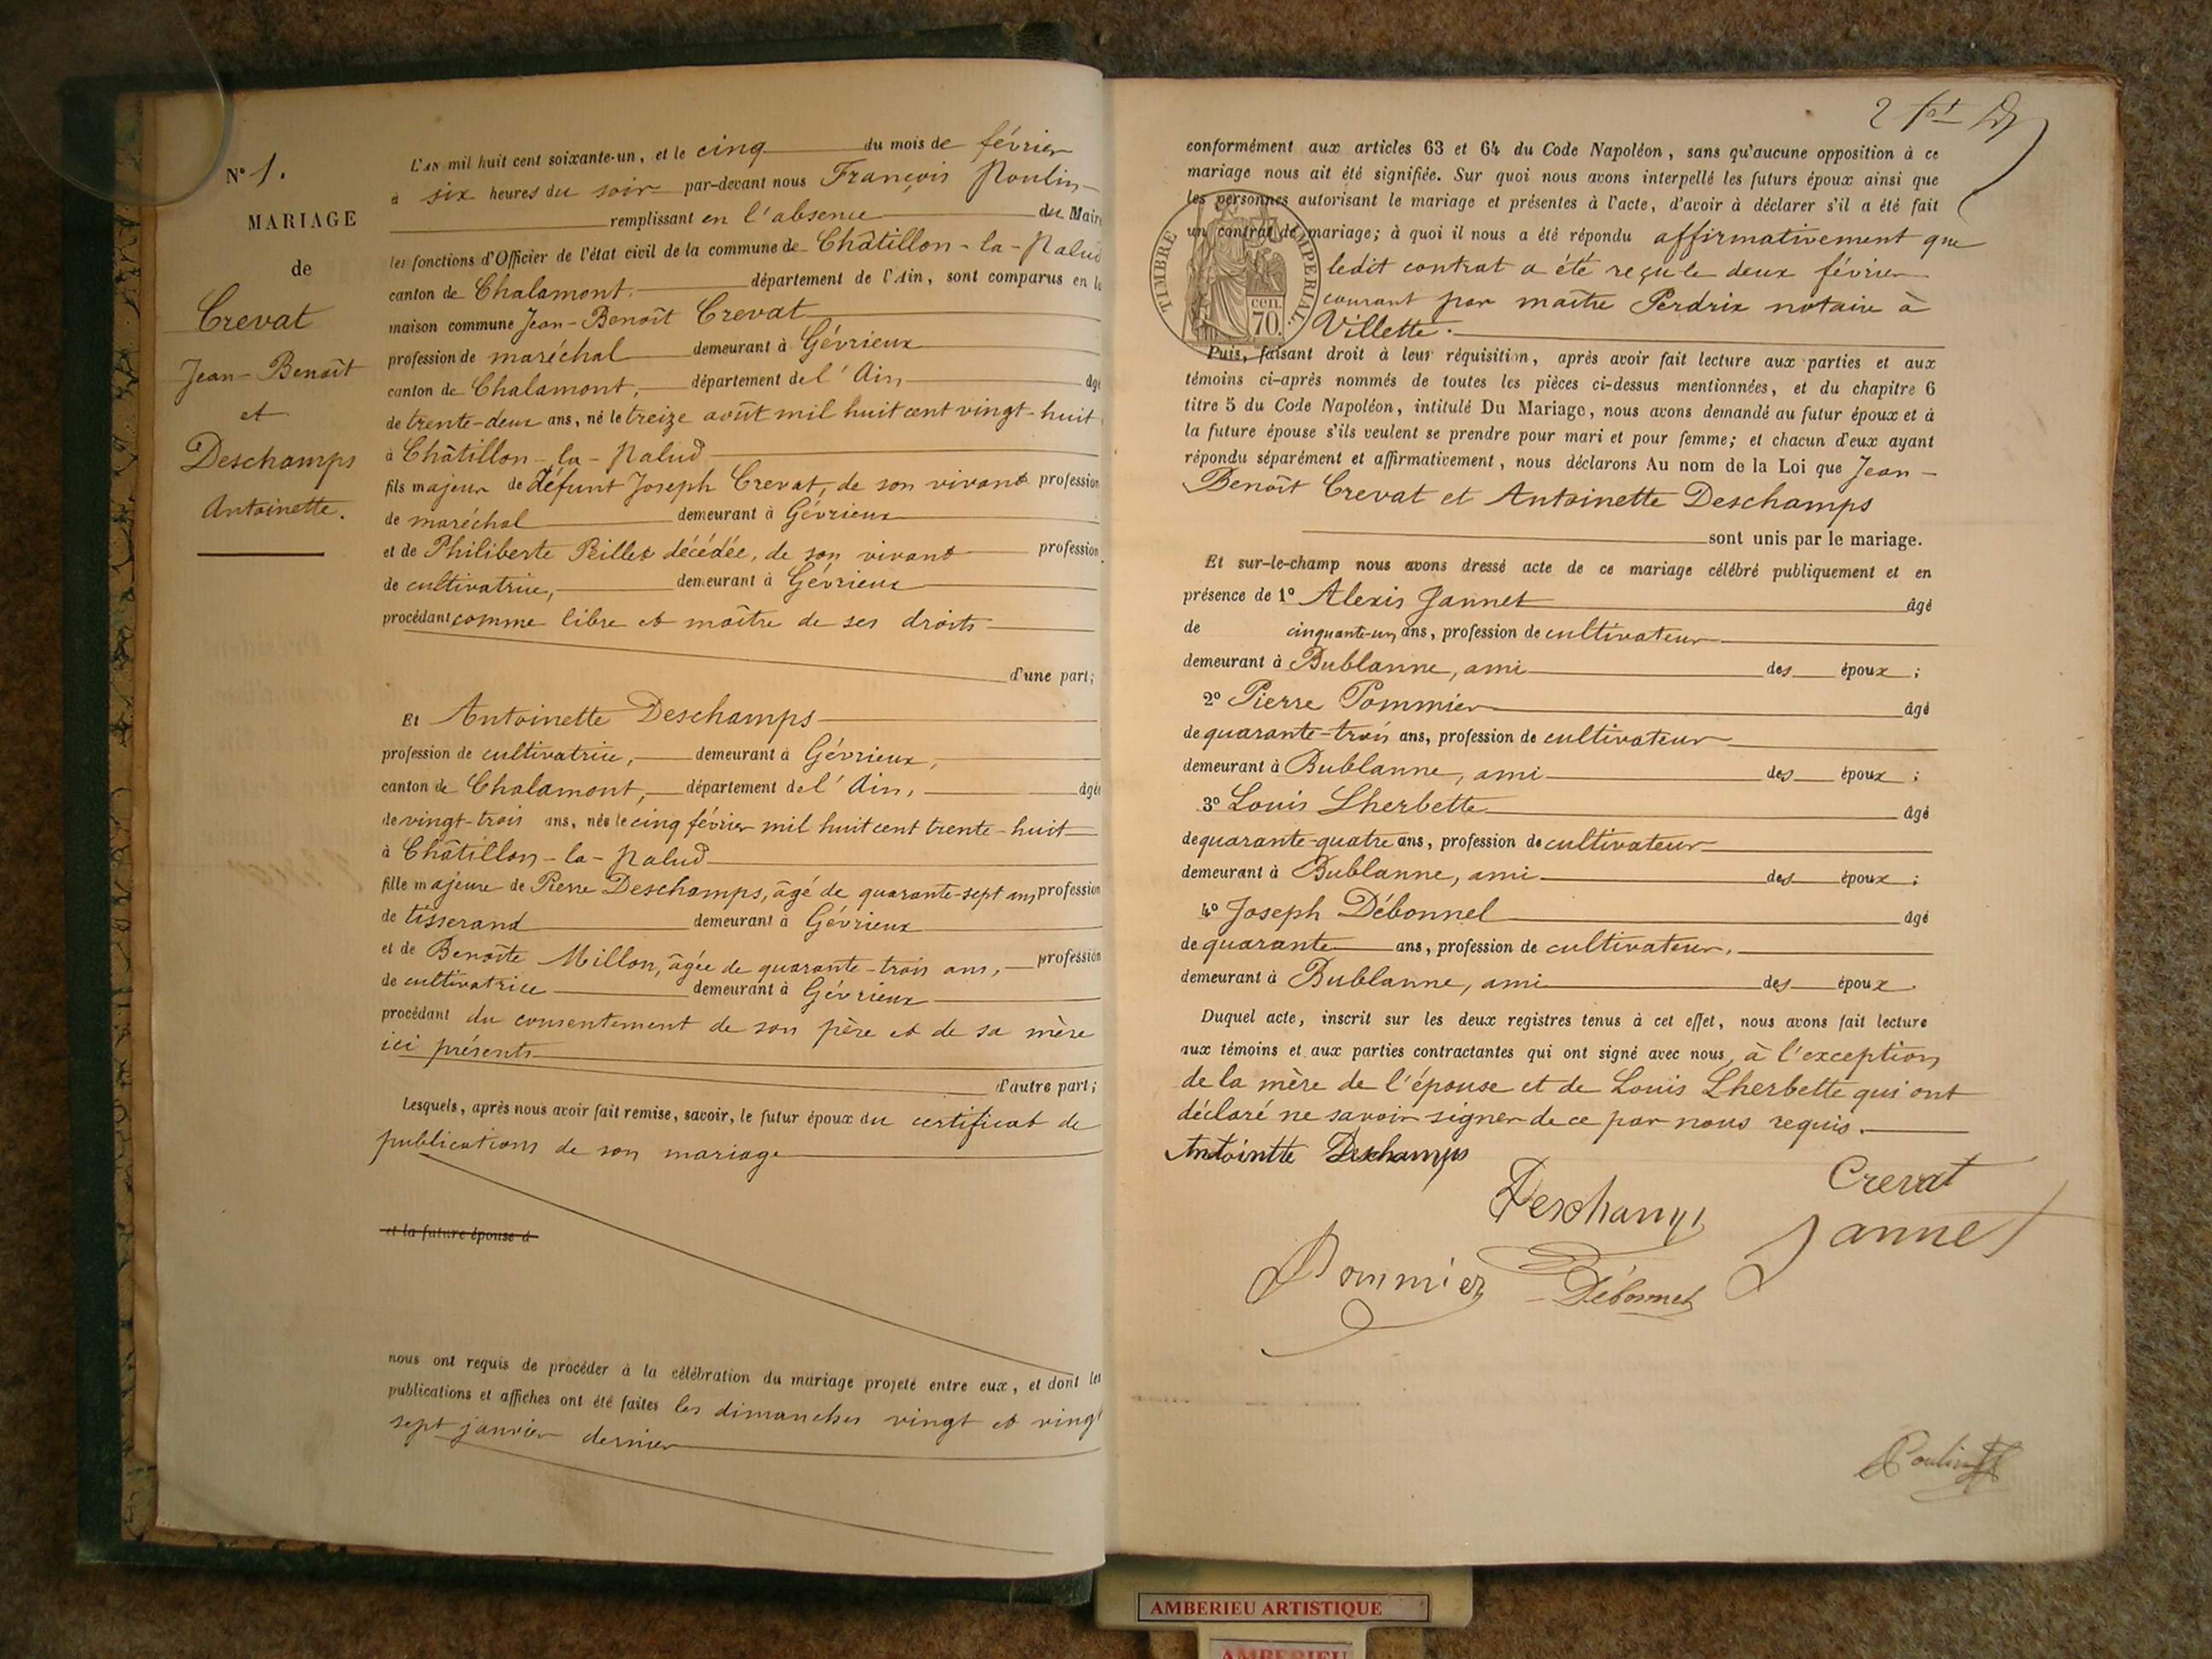 N° 1.
MARIAGE
de
Crevat
Jean-Benoît
et
Deschamps
Antoinette.
L'AN mil huit cent soixante-un, et le cinq du mois de février
à six heures du soir par-devant nous François Poulin
remplissant en l'absence du Maire
les fonctions d'Officier de l'état civil de la commune de Châtillon-la-Palud
canton de Chalamont, département de l'Ain, sont comparus en la
maison commune Jean-Benoît Crevat
profession de maréchal demeurant à Gévrieux
canton de Chalamont, département de l'Ain âgé
de trente-deux ans, né le treize août mil huit cent vingt-huit
à Châtillon-la-Palud
fils majeur de défunt Joseph Crevat, de son vivant profession
de maréchal demeurant à Gévrieux
et de Philiberte Rillet décédée, de son vivant profession
de cultivatrice, demeurant à Gévrieux
procédant comme libre et maître de ses droits
d'une part;
Et Antoinette Deschamps
profession de cultivatrice, demeurant à Gévrieux,
canton de Chalamont, département de l'Ain, âgée
de vingt-trois ans, née le cinq février mil huit cent trente-huit
à Châtillon-la-Palud
fille majeure de Pierre Deschamps, âgé de quarante-sept ans, profession
de tisserand demeurant à Gévrieux
et de Benoîte Millon, âgée de quarante-trois ans, profession
de cultivatrice demeurant à Gévrieux
procédant du consentement de son père et de sa mère
ici présents
d'autre part;
Lesquels, après nous avoir fait remise, savoir, le futur époux du certificat de
publications de son mariage
et la future épouse d
nous ont requis de procéder à la célébration du mariage projeté entre eux, et dont les
publications et affiches ont été faites les dimanches vingt et vingt
sept janvier dernier
conformément aux articles 63 et 64 du Code Napoléon, sans qu'aucune opposition à ce
mariage nous ait été signifiée. Sur quoi nous avons interpellé les futurs époux ainsi que
les personnes autorisant le mariage et présentes à l'acte, d'avoir à déclarer s'il a été fait
un contrat de mariage; à quoi il nous a été répondu affirmativement que
ledit contrat a été reçu le deux février
courant par maître Perdrix notaire à
Villette.
TIMBRE IMPERIAL
cen.
70.
Puis, faisant droit à leur réquisition, après avoir fait lecture aux parties et aux
témoins ci-après nommés de toutes les pièces ci-dessus mentionnées, et du chapitre 6
titre 5 du Code Napoléon, intitulé Du Mariage, nous avons demandé au futur époux et à
la future épouse s'ils veulent se prendre pour mari et pour femme; et chacun d'eux ayant
répondu séparément et affirmativement, nous déclarons Au nom de la Loi que Jean-
Benoît Crevat et Antoinette Deschamps
sont unis par le mariage.
Et sur-le-champ nous avons dressé acte de ce mariage célébré publiquement et en
présence de 1° Alexis Jannet âgé
de cinquante-un ans, profession de cultivateur
demeurant à Bublanne, ami des époux;
2° Pierre Pommier âgé
de quarante-trois ans, profession de cultivateur
demeurant à Bublanne, ami des époux;
3° Louis Lherbette âgé
de quarante-quatre ans, profession de cultivateur
demeurant à Bublanne, ami des époux;
4° Joseph Débonnel âgé
de quarante ans, profession de cultivateur,
demeurant à Bublanne, ami des époux.
Duquel acte, inscrit sur les deux registres tenus à cet effet, nous avons fait lecture
aux témoins et aux parties contractantes qui ont signé avec nous, à l'exception
de la mère de l'épouse et de Louis Lherbette qui ont
déclaré ne savoir signer de ce par nous requis.
Antointte Deschamps
Crevat
Deschamps
Jannet
Pommier
Débonnel
Poulin
AMBERIEU ARTISTIQUE
AMBERIEU